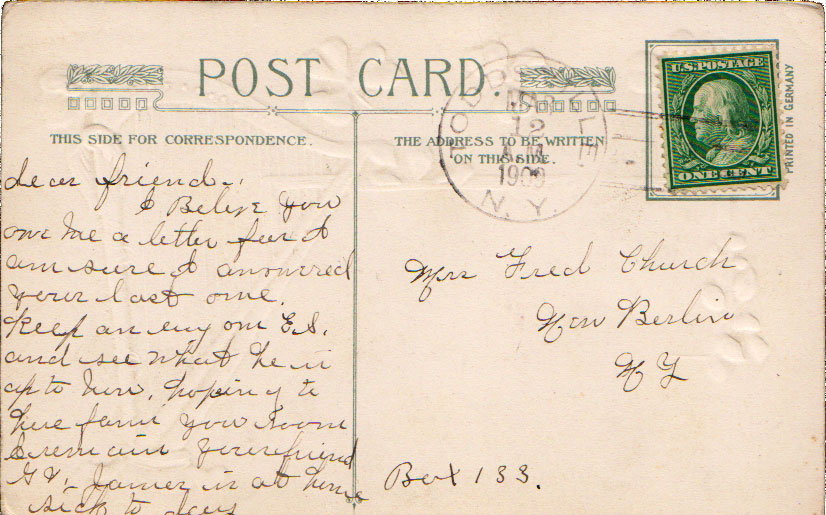 POST CARD.
THIS SIDE FOR CORRESPONDENCE.
THE ADDRESS TO BE WRITTEN
ON THIS SIDE.
12
AM
1909
N. Y.
U.S. POSTAGE
ONE CENT
PRINTED IN GERMANY
dear friend.
I Belive you
owe me a letter for I
am sure I answered
your last one.
Keep an eye on E.S.
and see what he is
up to now, hoping to
here from you soon
I remain your friend
is at home
sick to days
Mrs Fred Church
New Berlin
N Y
Box 133.